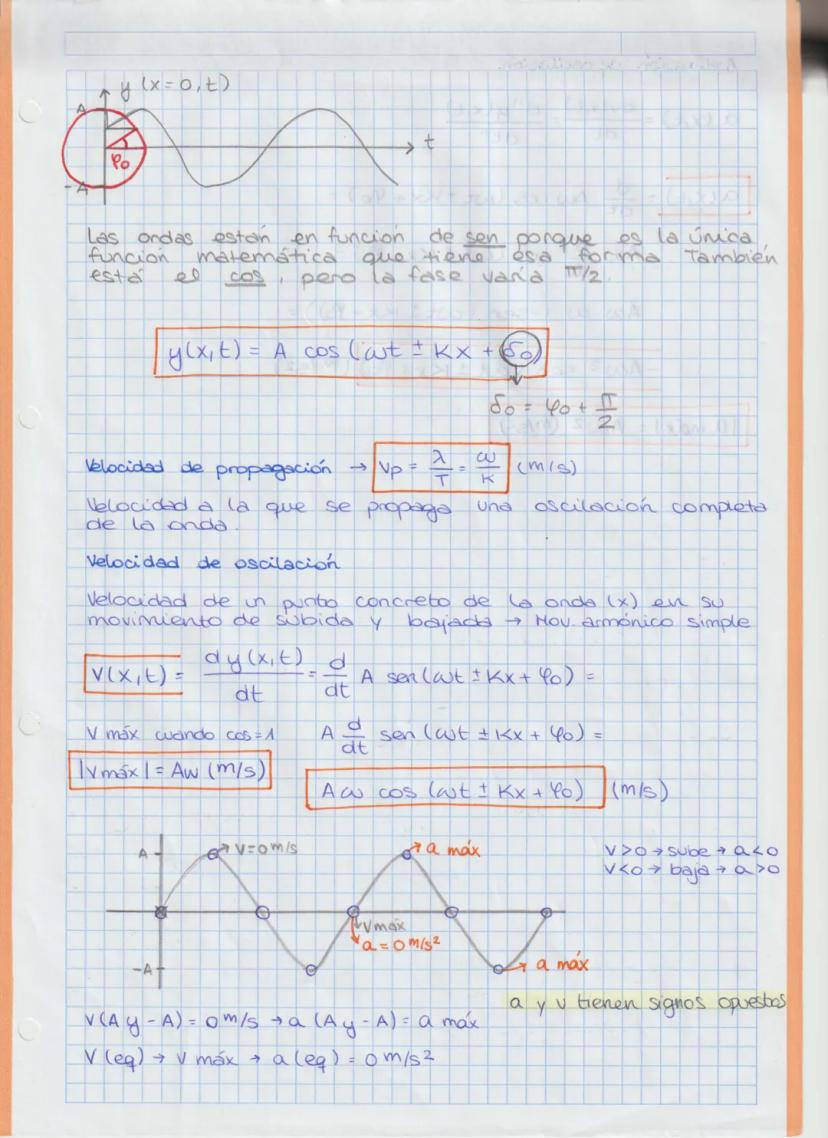 y (x=0,t)
A
t
φ₀
-A
Las ondas están en función de sen porque es la única
función matemática que tiene esa forma También
está el cos, pero la fase varía π/2.
y(x,t) = A cos (ωt ± Kx + δ₀)
δ₀ = φ₀ + π/2
Velocidad de propagación → Vp = λ/T = ω/K (m/s)
Velocidad a la que se propaga una oscilación completa
de la onda.
Velocidad de oscilación
Velocidad de un punto concreto de la onda (x) en su
movimiento de subida y bajada → Mov. armónico simple
V(x,t) = dy(x,t)/dt = d/dt A sen(ωt ± Kx + φ₀) =
V máx cuando cos=1 A d/dt sen (ωt ± Kx + φ₀) =
|Vmáx| = Aω (m/s)
Aω cos (ωt ± Kx + φ₀) (m/s)
A
V=0 m/s
a máx
V>0 → sube → a<0
V<0 → baja → a>0
Vmáx
a = 0 m/s²
-A
a máx
a y v tienen signos opuestos
V(A y -A) = 0 m/s → a (A y -A) = a máx
V (eq) → V máx → a (eq) = 0 m/s²